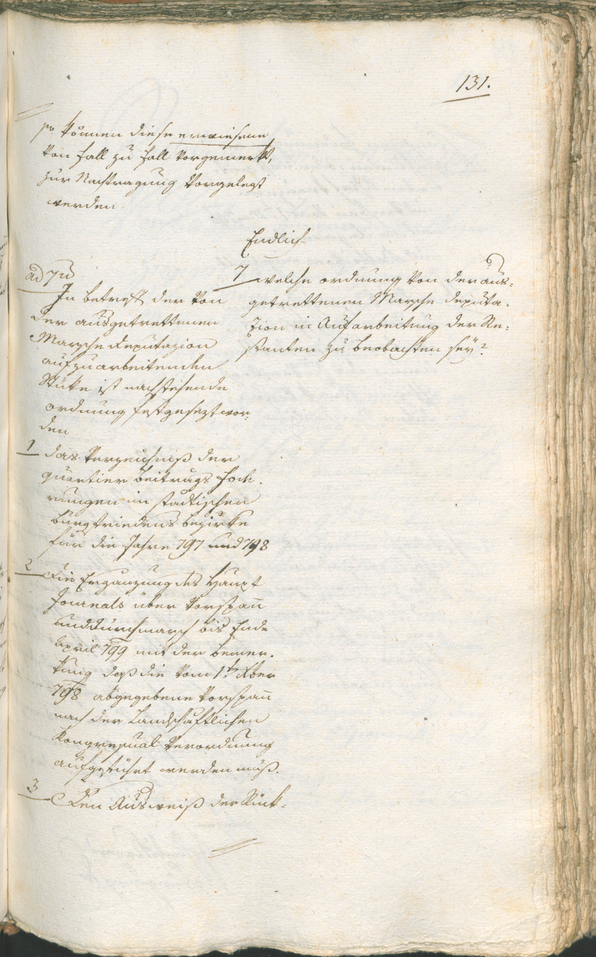 131.
so können diese erwiesene
von fall zu fall vorgemerkt,
zur Nachtragung vorgelegt
werden.
Endlich
7 welche ordnung von der aus-
getrettenen Marsche Deputa-
zion in Aufarbeitung der Re-
stanten zu beobachten sey?
ad 7m
In betreff der von
der ausgetrettenen
Marsche Deputazion
aufzuarbeitenden
Stüke ist nachstehende
ordnung festgesezt wor-
den
1 das Verzeichniß der
quartier beitrags
im städtischen
burgfriedens bezirke
für die Jahre 797 und 798
2 Die Ergänzung des Haupt
Journals über Vorspann
und durchmarsch bis Ende
April 799 mit der bemer-
kung daß die vom 1ten
798 abgegebene Vorspann
nach der Landschaftlichen
Verordnung
aufgeführt werden müß.
3 Den Ausweiß der Rük-